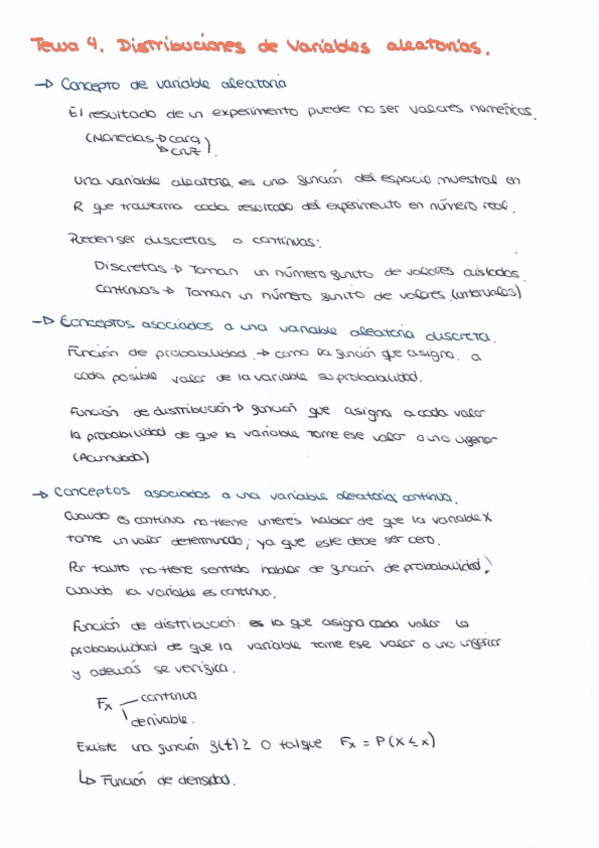 Tema 4. Distribuciones de Variables aleatorias.
→ Concepto de variable aleatoria
El resultado de un experimento puede no ser valores numéricos.
(Monedas → cara
↳ cruz).
Una variable aleatoria es una función del espacio muestral en
R que transforma cada resultado del experimento en número real.
Pueden ser discretas o continuas:
Discretas → Toman un número finito de valores aislados.
Continuas → Toman un número finito de valores (intervalos)
→ Conceptos asociados a una variable aleatoria discreta.
Función de probabilidad. → como la función que asigna. a
cada posible valor de la variable su probabilidad.
Función de distribución → función que asigna a cada valor
la probabilidad de que la variable tome ese valor o uno inferior
(Acumulada)
→ Conceptos asociados a una variable aleatoria continua.
Cuando es continua no tiene interés hablar de que la variable X
tome un valor determinado, ya que este debe ser cero.
Por tanto no tiene sentido hablar de función de probabilidad,
cuando la variable es continua.
Función de distribución: es la que asigna cada valor la
probabilidad de que la variable tome ese valor o uno inferior
y además se verifica.
Fx continua
derivable.
Existe una función f(t) ≥ 0 tal que Fx = P(X ≤ x)
↳ Función de densidad.